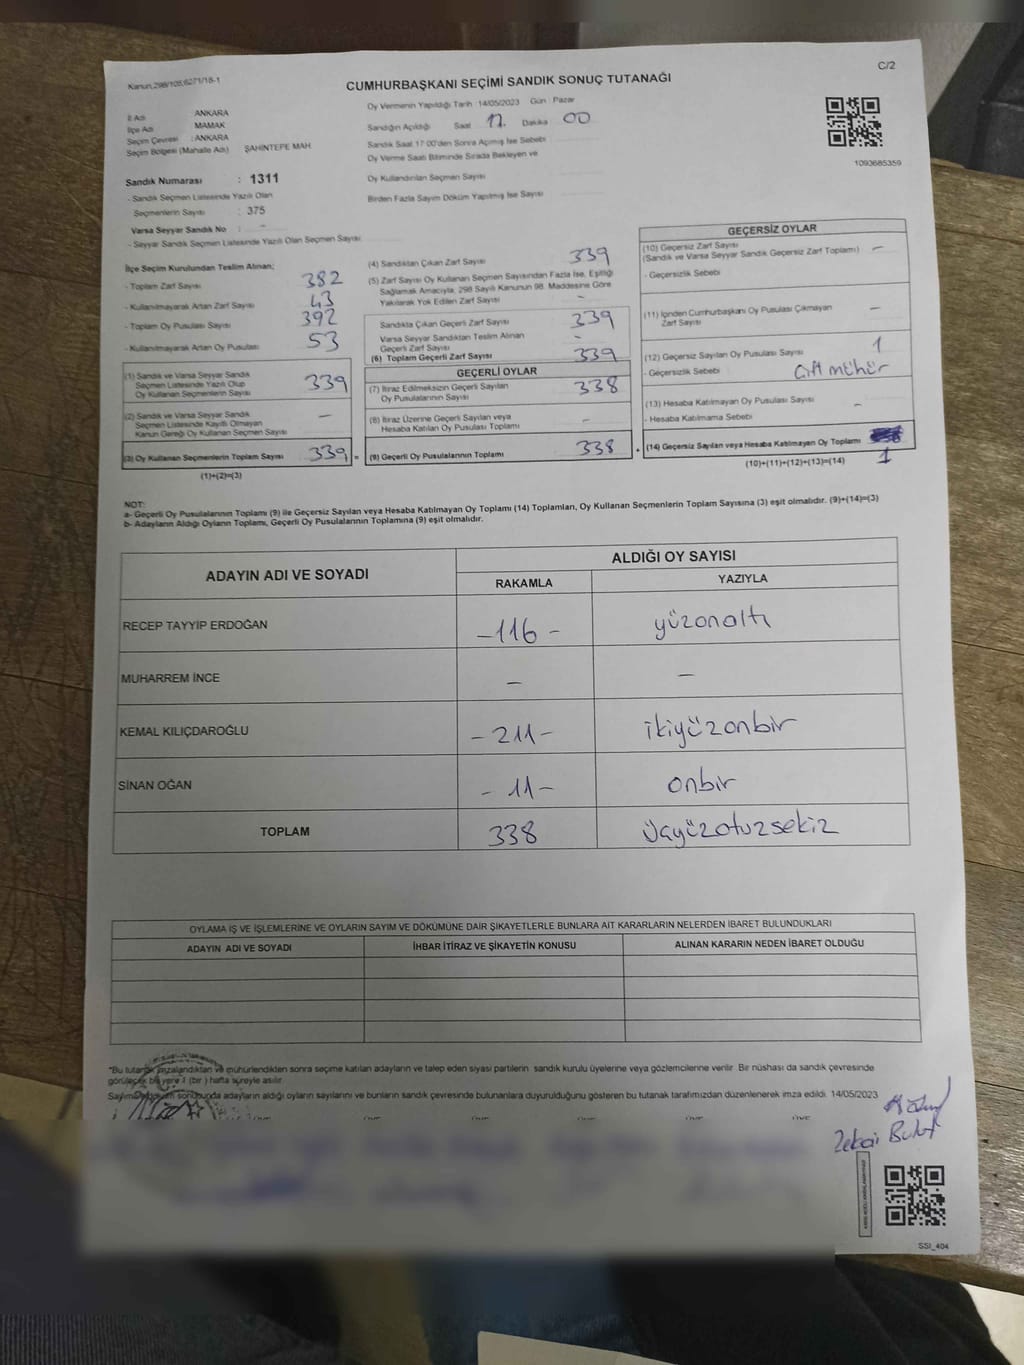 Kanun,298/105,6271/16-1
C/2
CUMHURBAŞKANI SEÇİMİ SANDIK SONUÇ TUTANAĞI
İl Adı : ANKARA
İlçe Adı MAMAK
Seçim Çevresi : ANKARA
Seçim Bölgesi (Mahalle Adı) ŞAHİNTEPE MAH.
Sandık Numarası : 1311
- Sandık Seçmen Listesinde Yazılı Olan
Seçmenlerin Sayısı : 375
Varsa Seyyar Sandık No : -
- Seyyar Sandık Seçmen Listesinde Yazılı Olan Seçmen Sayısı
Oy Vermenin Yapıldığı Tarih : 14/05/2023 Gün : Pazar
Sandığın Açıldığı Saat 17. Dakika 00
Sandık Saat 17:00'den Sonra Açılmış İse Sebebi
Oy Verme Saati Bitiminde Sırada Bekleyen ve
Oy Kullandırılan Seçmen Sayısı
Birden Fazla Sayım Döküm Yapılmış İse Sayısı
1093685359
İlçe Seçim Kurulundan Teslim Alınan;
- Toplam Zarf Sayısı 382
- Kullanılmayarak Artan Zarf Sayısı 43
- Toplam Oy Pusulası Sayısı 392
- Kullanılmayarak Artan Oy Pusulası 53
(1) Sandık ve Varsa Seyyar Sandık
Seçmen Listesinde Yazılı Olup
Oy Kullanan Seçmenlerin Sayısı 339
(2) Sandık ve Varsa Seyyar Sandık
Seçmen Listesinde Kayıtlı Olmayan
Kanun Gereği Oy Kullanan Seçmen Sayısı -
(3) Oy Kullanan Seçmenlerin Toplam Sayısı 339 =
(1)+(2)=(3)
(4) Sandıktan Çıkan Zarf Sayısı 339
(5) Zarf Sayısı Oy Kullanan Seçmen Sayısından Fazla İse, Eşitliği
Sağlamak Amacıyla, 298 Sayılı Kanunun 98. Maddesine Göre
Yakılarak Yok Edilen Zarf Sayısı -
Sandıkta Çıkan Geçerli Zarf Sayısı 339
Varsa Seyyar Sandıktan Teslim Alınan
Geçerli Zarf Sayısı -
(6) Toplam Geçerli Zarf Sayısı 339
GEÇERLİ OYLAR
(7) İtiraz Edilmeksizin Geçerli Sayılan
Oy Pusulalarının Sayısı 338
(8) İtiraz Üzerine Geçerli Sayılan veya
Hesaba Katılan Oy Pusulası Toplamı -
(9) Geçerli Oy Pusulalarının Toplamı 338 +
GEÇERSİZ OYLAR
(10) Geçersiz Zarf Sayısı
(Sandık ve Varsa Seyyar Sandık Geçersiz Zarf Toplamı) -
- Geçersizlik Sebebi
(11) İçinden Cumhurbaşkanı Oy Pusulası Çıkmayan
Zarf Sayısı -
(12) Geçersiz Sayılan Oy Pusulası Sayısı 1
- Geçersizlik Sebebi Çift mühür
(13) Hesaba Katılmayan Oy Pusulası Sayısı -
- Hesaba Katılmama Sebebi
(14) Geçersiz Sayılan veya Hesaba Katılmayan Oy Toplamı
(10)+(11)+(12)+(13)=(14) 1
NOT:
a- Geçerli Oy Pusulalarının Toplamı (9) ile Geçersiz Sayılan veya Hesaba Katılmayan Oy Toplamı (14) Toplamları, Oy Kullanan Seçmenlerin Toplam Sayısına (3) eşit olmalıdır. (9)+(14)=(3)
b- Adayların Aldığı Oyların Toplamı, Geçerli Oy Pusulalarının Toplamına (9) eşit olmalıdır.
ADAYIN ADI VE SOYADI
ALDIĞI OY SAYISI
RAKAMLA YAZIYLA
RECEP TAYYİP ERDOĞAN -116- yüzonaltı
MUHARREM İNCE - -
KEMAL KILIÇDAROĞLU -211- ikiyüzonbir
SİNAN OĞAN -11- onbir
TOPLAM 338 üçyüzotuzsekiz
OYLAMA İŞ VE İŞLEMLERİNE VE OYLARIN SAYIM VE DÖKÜMÜNE DAİR ŞİKAYETLERLE BUNLARA AİT KARARLARIN NELERDEN İBARET BULUNDUKLARI
ADAYIN ADI VE SOYADI İHBAR İTİRAZ VE ŞİKAYETİN KONUSU ALINAN KARARIN NEDEN İBARET OLDUĞU
*Bu tutanak imzalandıktan ve mühürlendikten sonra seçime katılan adayların ve talep eden siyasi partilerin sandık kurulu üyelerine veya gözlemcilerine verilir. Bir nüshası da sandık çevresinde
görülecek bir yere 1 (bir) hafta süreyle asılır.
Sayım döküm sonucunda adayların aldığı oyların sayılarını ve bunların sandık çevresinde bulunanlara duyurulduğunu gösteren bu tutanak tarafımızdan düzenlenerek imza edildi. 14/05/2023
Zekai Bulut
SSI_404